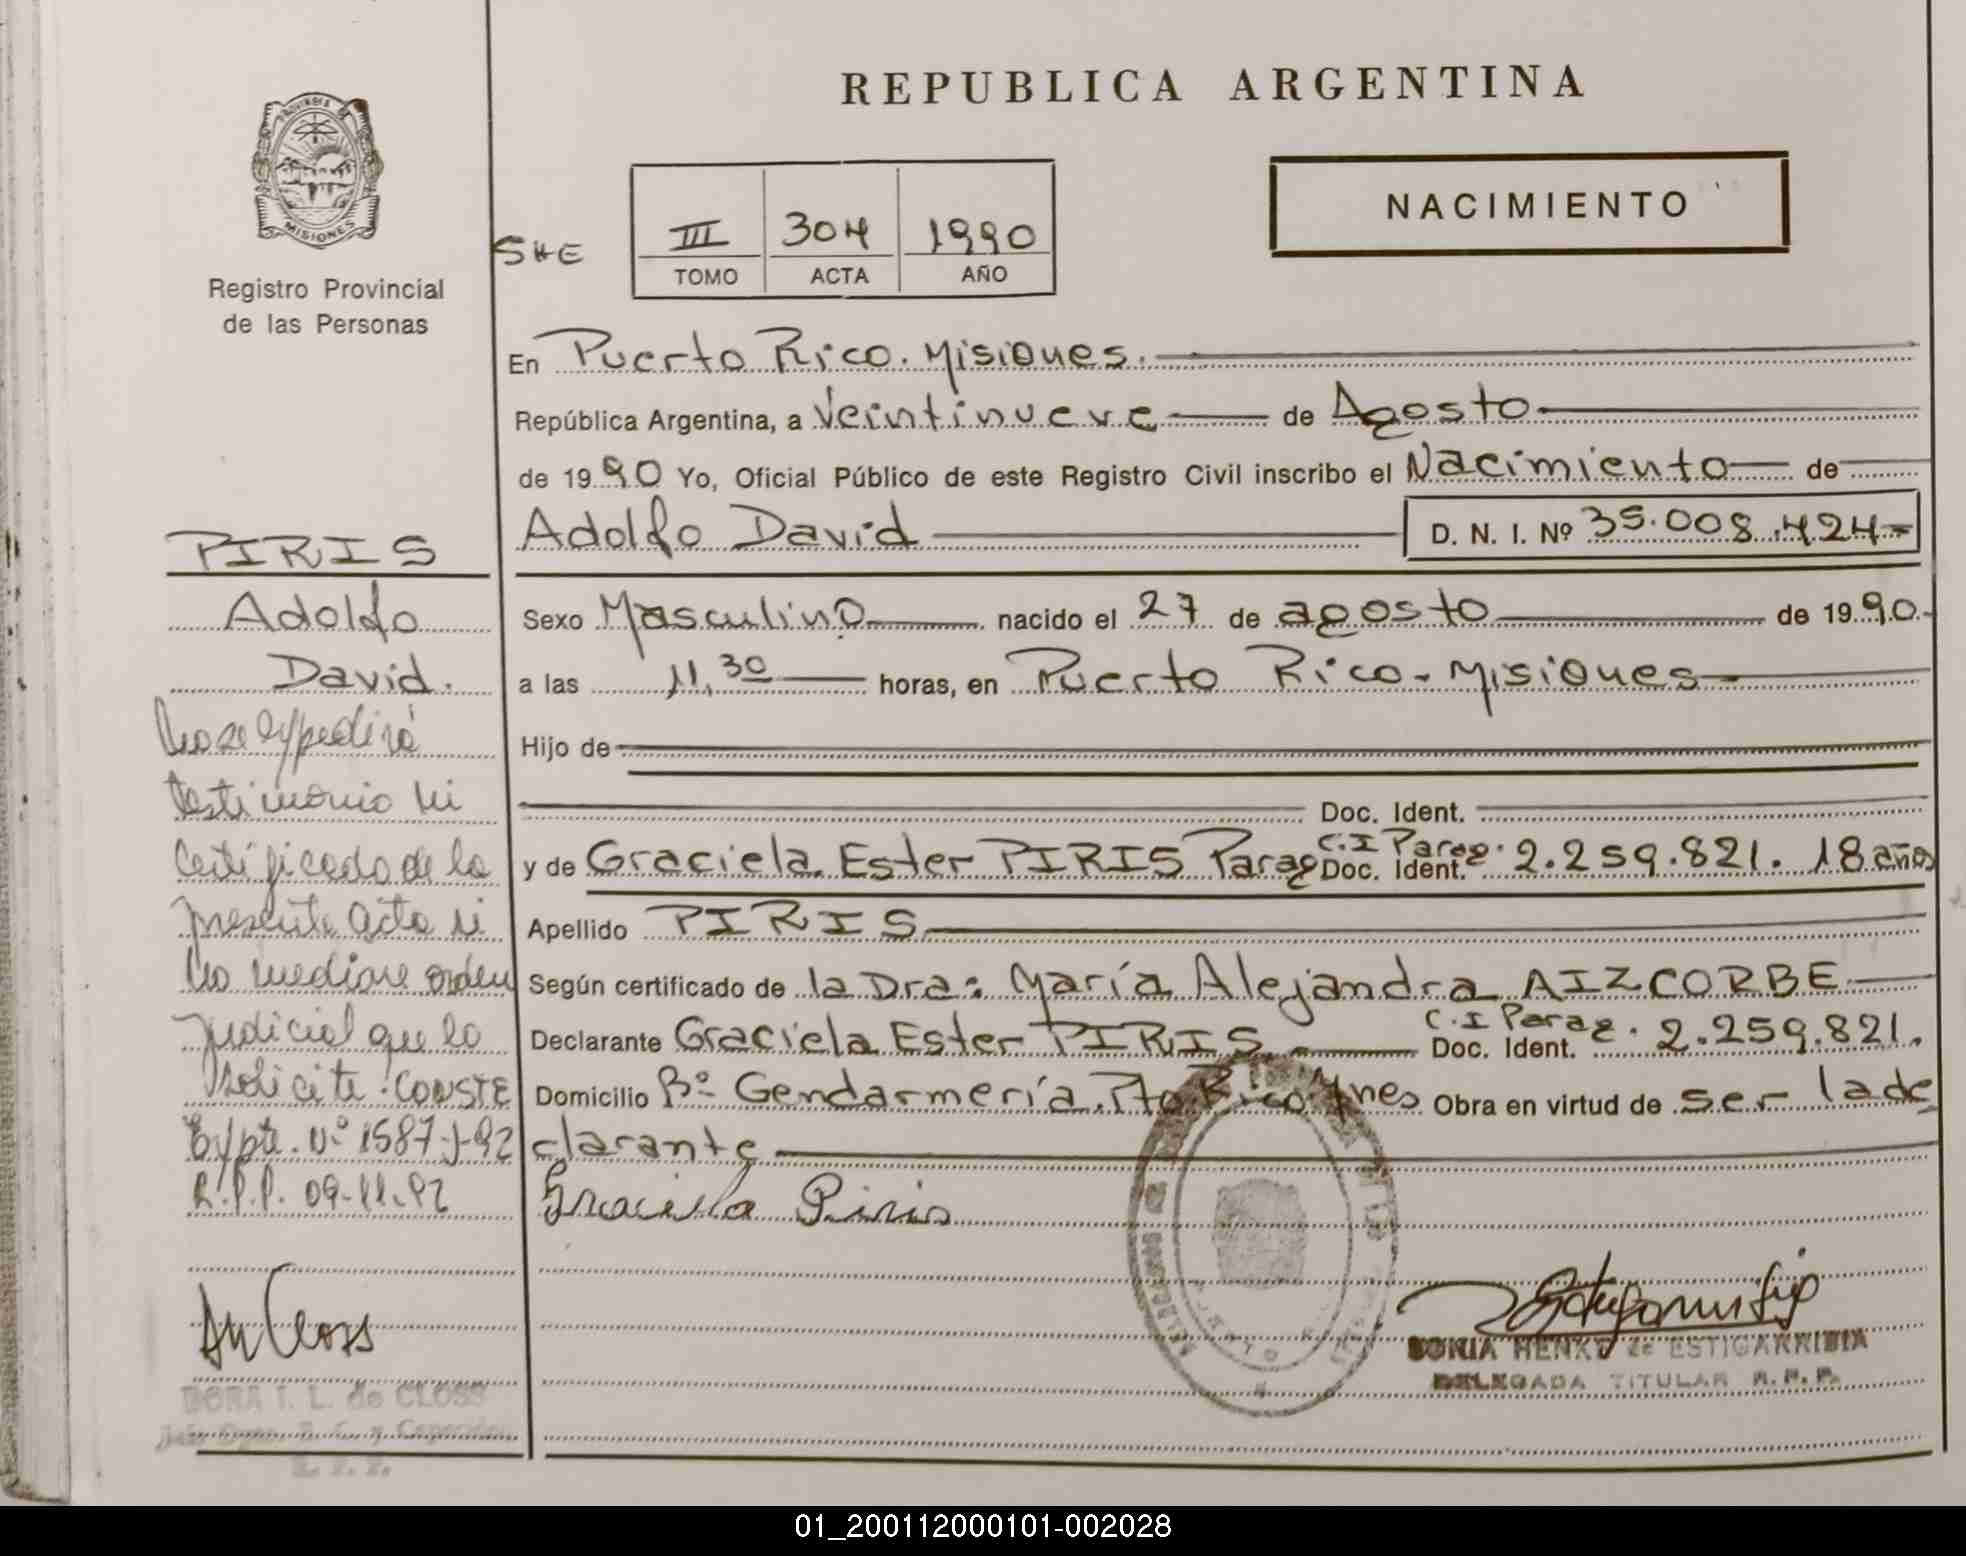 REPUBLICA ARGENTINA
PROVINCIA
MISIONES
Registro Provincial
de las Personas
NACIMIENTO
III 304 1990
TOMO ACTA AÑO
En Puerto Rico. Misiones.
República Argentina, a Veintinueve de Agosto
de 1990 Yo, Oficial Público de este Registro Civil inscribo el Nacimiento de
Adolfo David D. N. I. Nº 35.008.424-
Sexo Masculino nacido el 27 de agosto de 1990.-
a las 11,30 horas, en Puerto Rico - Misiones
Hijo de
Doc. Ident.
y de Graciela Ester PIRIS Parag C.I Parag. Doc. Ident. 2.259.821. 18 años
Apellido PIRIS
Según certificado de la Dra: María Alejandra AIZCORBE
Declarante Graciela Ester PIRIS C.I Parag. Doc. Ident. 2.259.821.
Domicilio Bº Gendarmería. Pto. Rico. Mnes Obra en virtud de ser la de
clarante
Graciela Piris
SONIA HENKE de ESTIGARRIBIA
DELEGADA TITULAR R.P.P.
PIRIS
Adolfo
David.
No se expedirá
testimonio ni
certificado de la
presente acta si
no mediare orden
judicial que lo
solicite. CONSTE
Expte. Nº 1587-J-92
R.P.P. 09-11-92
DORA I. L. de CLOSS
R. P. P.
01_200112000101-002028